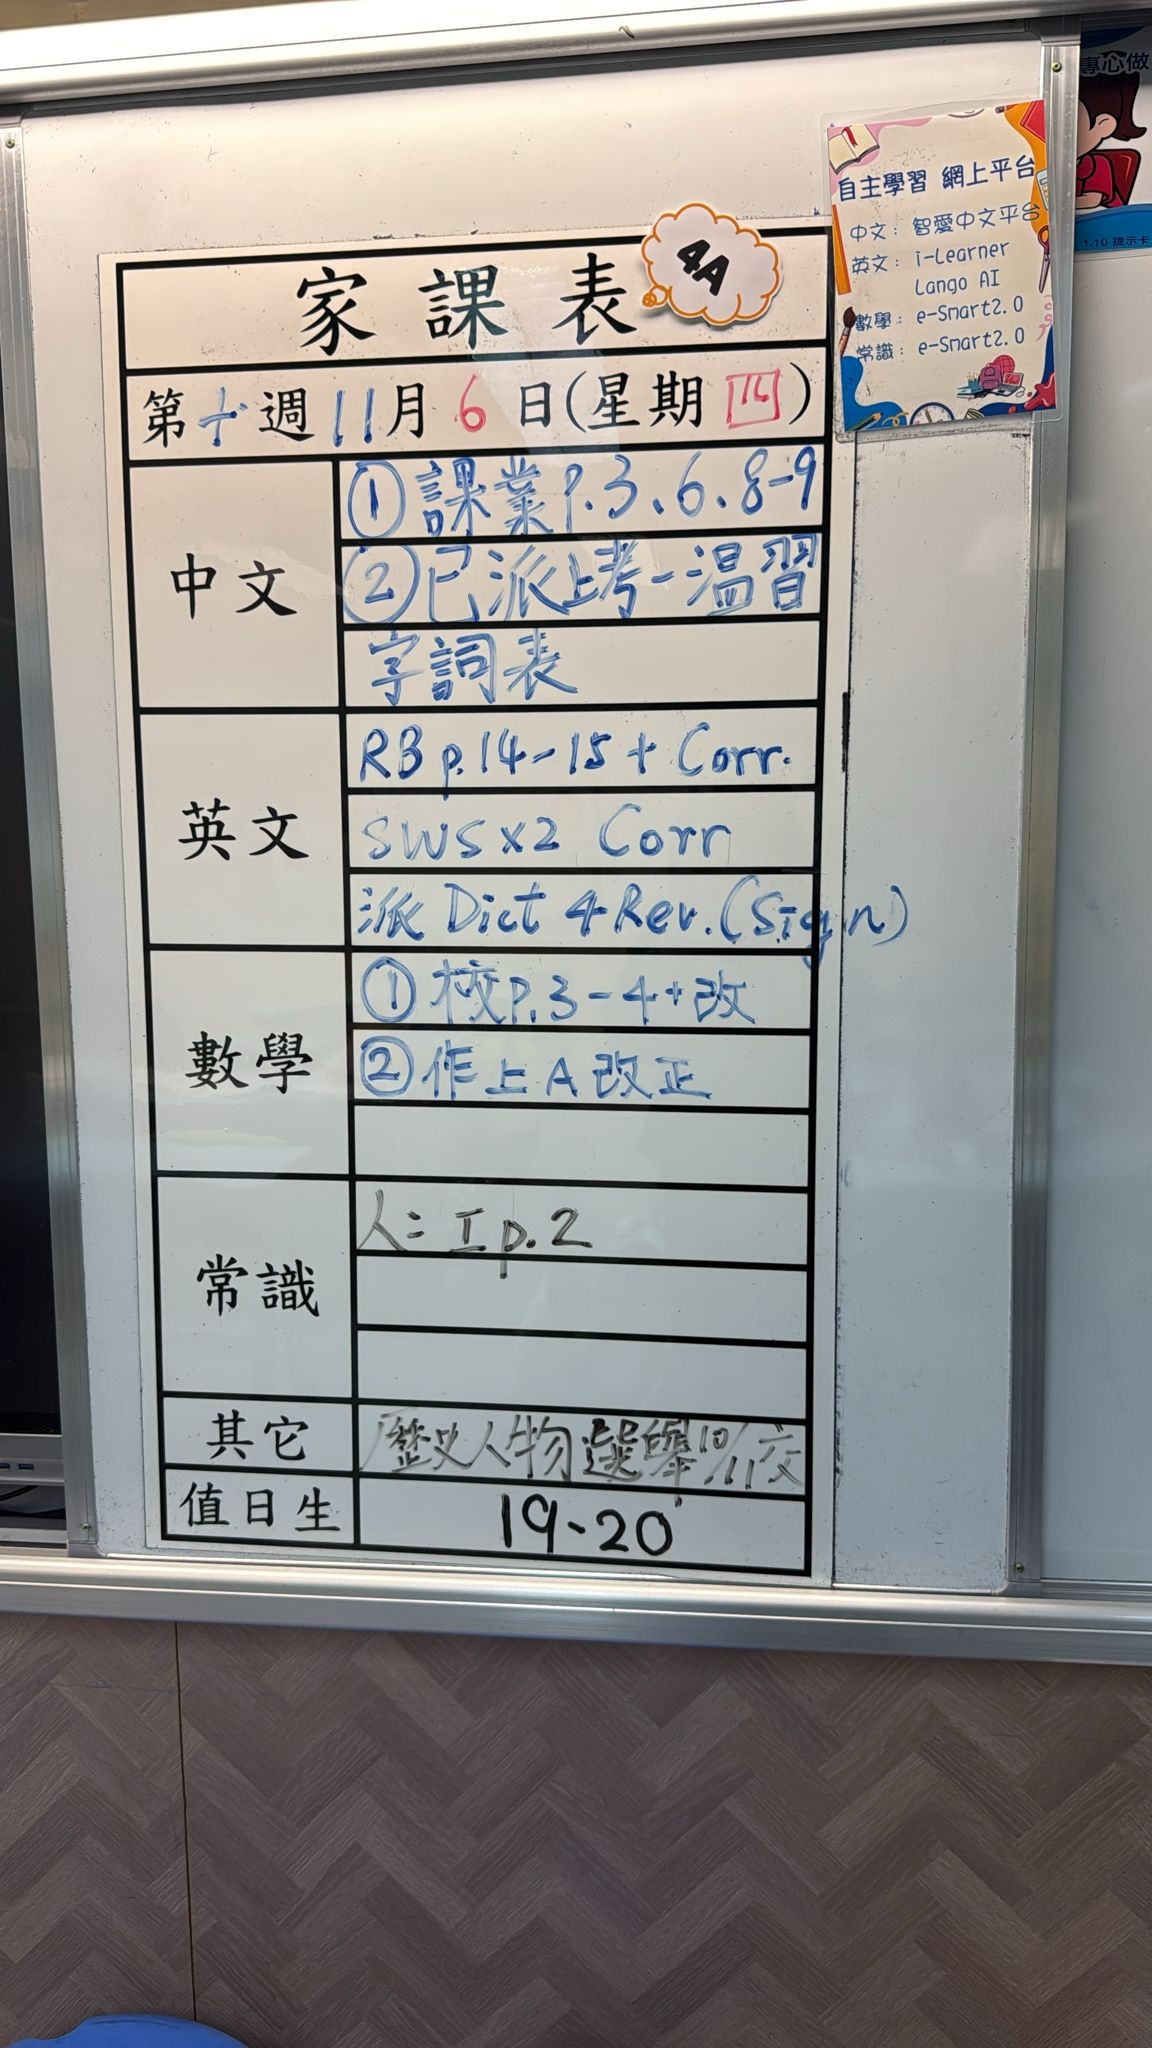 專心做
1.10 提示卡
自主學習 網上平台
中文：智愛中文平台
英文：i-Learner
Lango AI
數學：e-Smart2.0
常識：e-Smart2.0
4A
家課表
第十週11月6日(星期四)
中文
①課業p.3、6、8-9
②已派上考-温習
字詞表
英文
RB p.14-15 + Corr.
SWS x2 Corr
派 Dict 4 Rev. (Sign)
數學
①校p.3-4+改
②作上A改正
常識
人：工p.2
其它
歷史人物選舉10/11交
值日生
19-20